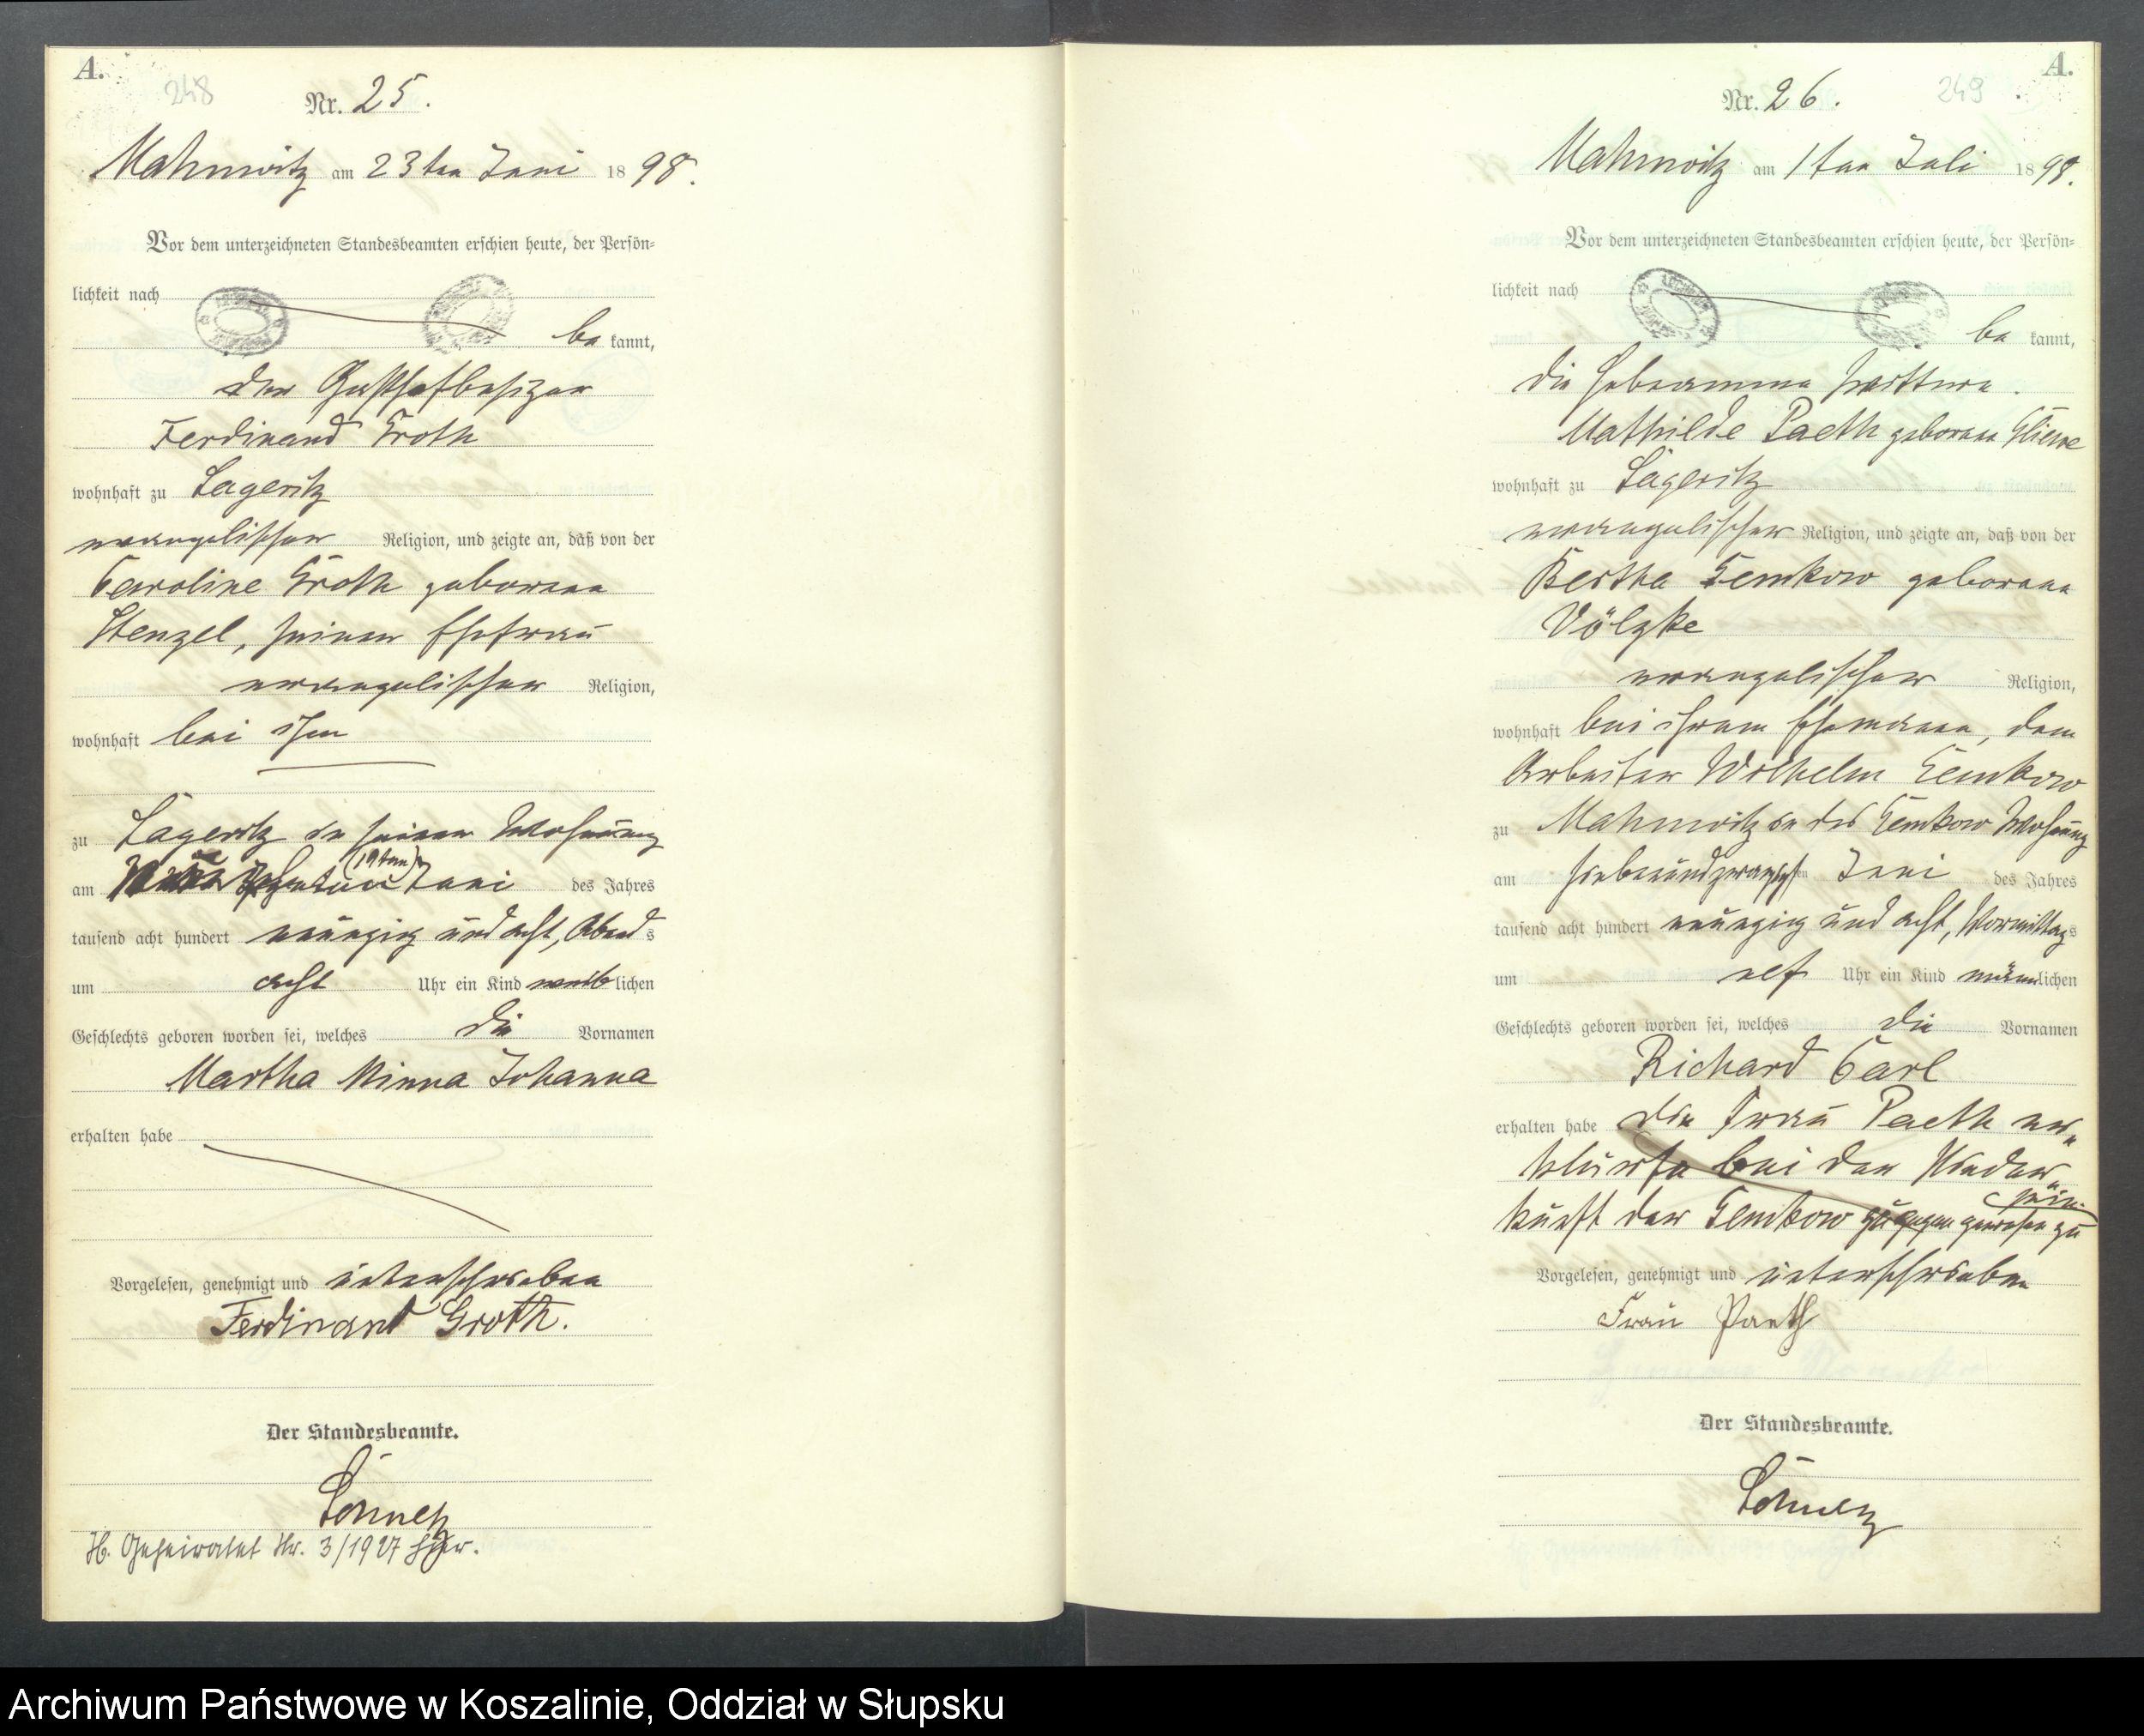 A.
248
Nr. 25.
Mahnwitz am 23ten Juni 1898.
Vor dem unterzeichneten Standesbeamten erschien heute, der Persön=
lichkeit nach
be kannt,
der Gasthofbesitzer
Ferdinand Groth
wohnhaft zu Lageritz
evangelischer Religion, und zeigte an, daß von der
Caroline Groth geborene
Stenzel, seiner Ehefrau
evangelischer Religion,
wohnhaft bei ihm
zu Lageritz in seiner Wohnung
am (19ten) Juni des Jahres
tausend acht hundert neunzig und acht, Abends
um acht Uhr ein Kind weiblichen
Geschlechts geboren worden sei, welches die Vornamen
Martha Minna Johanna
erhalten habe
Vorgelesen, genehmigt und unterschrieben
Ferdinand Groth.
Der Standesbeamte.
H. Geheiratet Nr. 3/1927 hier.
A.
249
Nr. 26.
Mahnwitz am 1ten Juli 1898.
Vor dem unterzeichneten Standesbeamten erschien heute, der Persön=
lichkeit nach
be kannt,
die Hebeamme Wittwe
Mathilde Paeth geborene Gliewe
wohnhaft zu Lageritz
evangelischer Religion, und zeigte an, daß von der
Bertha Gemkow geborene
Völzke
evangelischer Religion,
wohnhaft bei ihrem Ehemann, dem
Arbeiter Wilhelm Gemkow
zu Mahnwitz in des Gemkow Wohnung
am siebenundzwanzigsten Juni des Jahres
tausend acht hundert neunzig und acht, Vormittags
um elf Uhr ein Kind männlichen
Geschlechts geboren worden sei, welches die Vornamen
Richard Carl
erhalten habe die Frau Paeth er„
klärte bei der Nieder„
kunft der Gemkow zugegen gewesen zu sein.
Vorgelesen, genehmigt und unterschrieben
Frau Paeth
Der Standesbeamte.
Archiwum Państwowe w Koszalinie, Oddział w Słupsku